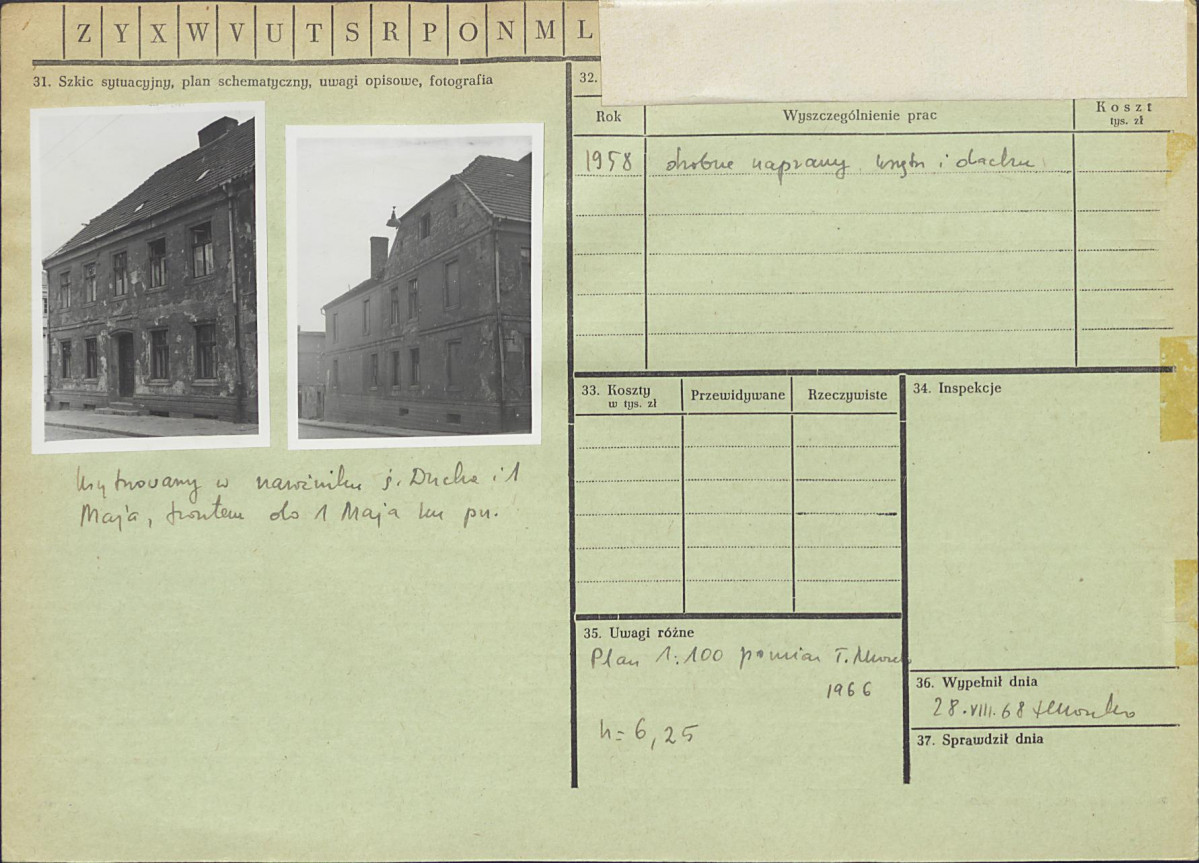 Z Y X W V U T S R P O N M L
31. Szkic sytuacyjny, plan schematyczny, uwagi opisowe, fotografia
Usytuowany w narożniku ś. Ducha i 1
Maja, frontem do 1 Maja ku pn.
32.
Rok Wyszczególnienie prac Koszt
tys. zł
1958 drobne naprawy i dachu
33. Koszty Przewidywane Rzeczywiste
w tys. zł
34. Inspekcje
35. Uwagi różne
Plan 1:100 pomiar T.
1966
h = 6,25
36. Wypełnił dnia
28.VIII.68
37. Sprawdził dnia